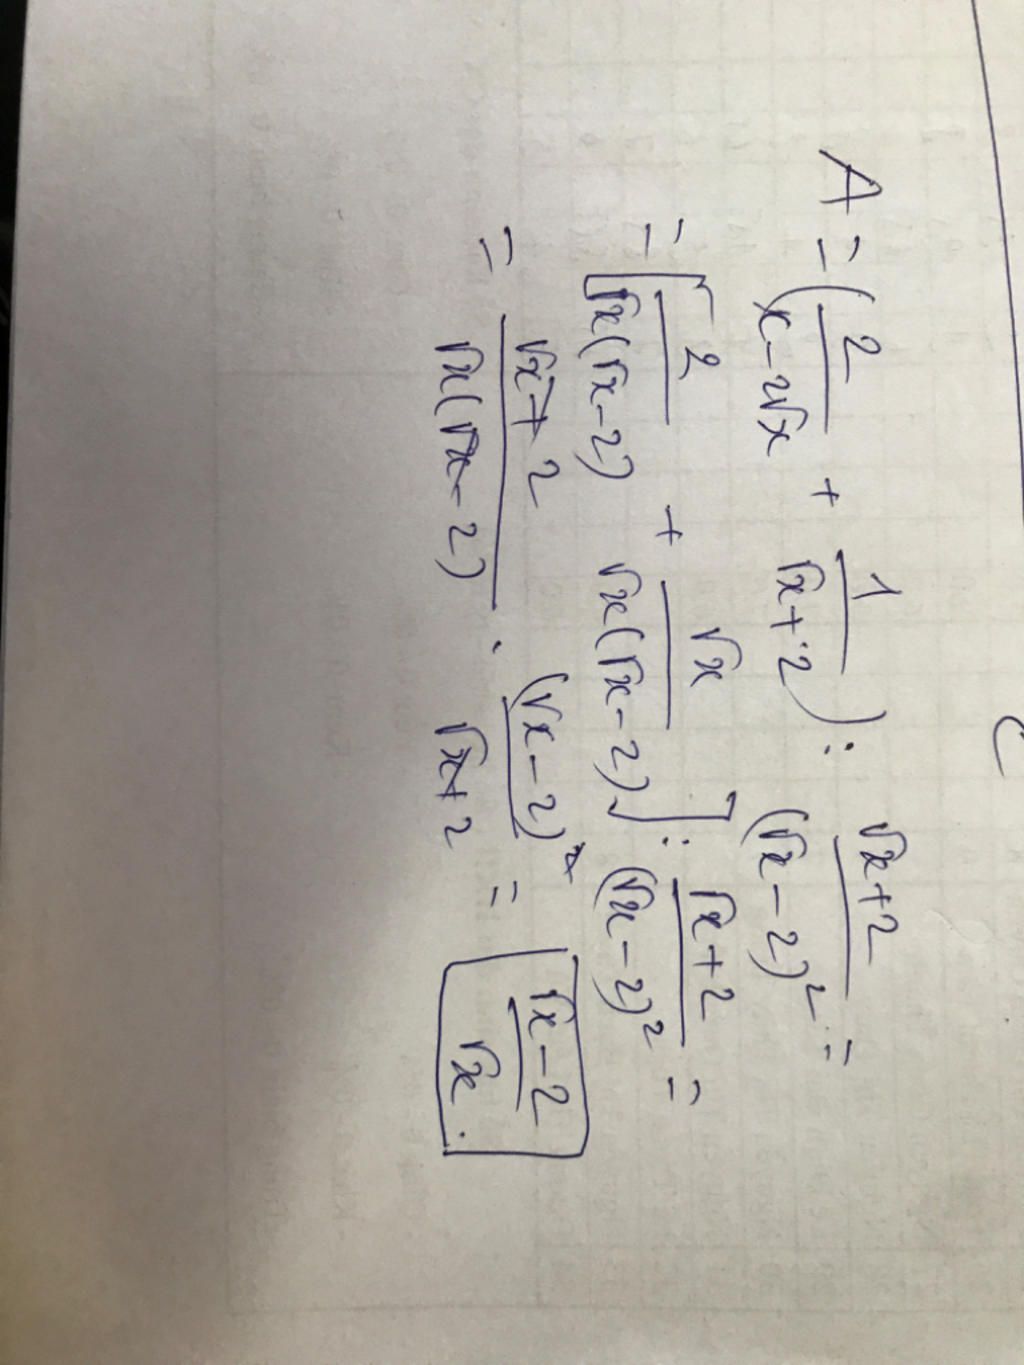 A = (2/(x-2√x) + 1/(√x+2)) : (√x+2)/(√x-2)² =
= [2/(√x(√x-2)) + √x/(√x(√x-2))] : (√x+2)/(√x-2)² =
= (√x+2)/(√x(√x-2)) . (√x-2)²/(√x+2) = (√x-2)/√x .